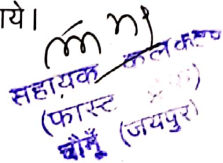 ये।
सहायक कलक्टर
(फास्ट
चौमूँ (जयपुर)